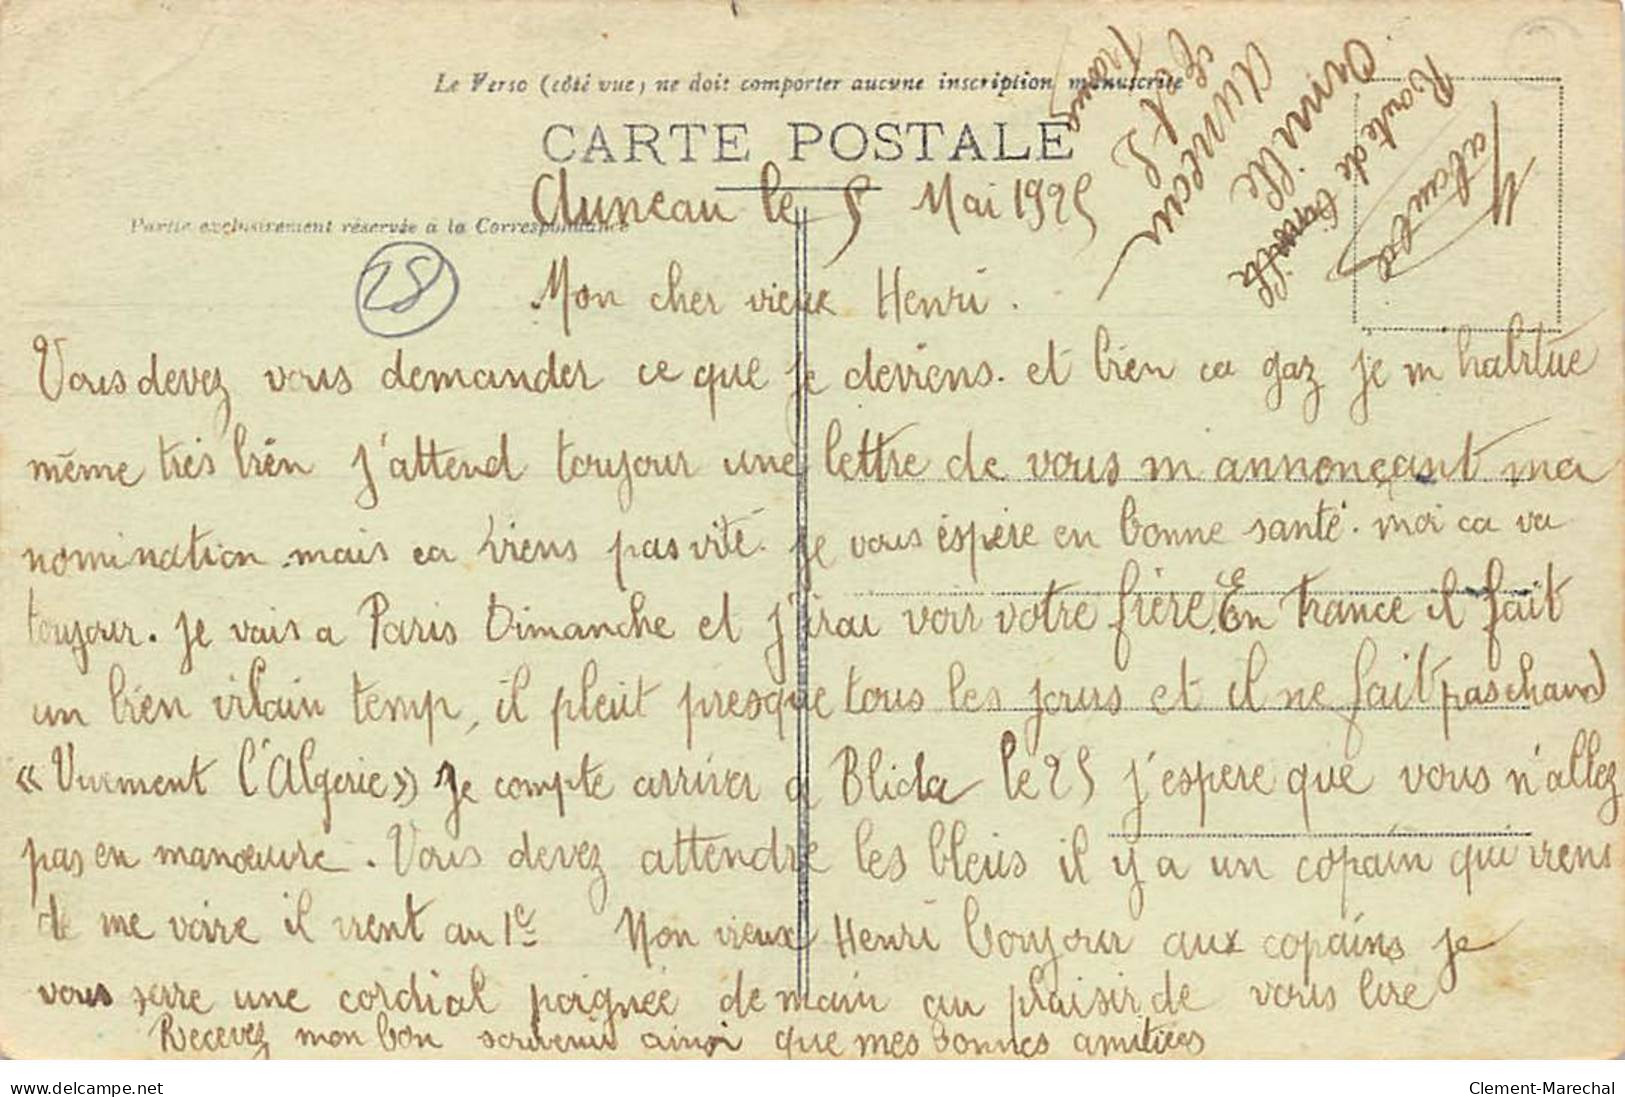 Le Verso (côté vue) ne doit comporter aucune inscription manuscrite
CARTE POSTALE
Partie exclusivement réservée à la Correspondance
28
Auneau le 5 Mai 1925
Mon cher vieux Henri.
Vous devez vous demander ce que je deviens. et bien ca gaz je m habitue
même très bien j'attend toujour une lettre de vous m annonçant ma
nomination. mais ca viens pas vite. je vous éspère en bonne santé. moi ca va
toujour. Je vais a Paris Dimanche et j'irai voir votre frère. En France il fait
un bien vilain temp, il pleut presque tous les jours et il ne fait pas chaud
«Vivement l'Algerie» Je compte arriver a Blida le 25 j'espere que vous n'allez
pas en manœuvre. Vous devez attendre les bleus il y a un copain qui viens
de me voire il vient au 1e Mon vieux Henri bonjour aux copains je
vous serre une cordial poignée de main au plaisir de vous lire
Recevez mon bon souvenir ainsi que mes bonnes amitiées
Route de
Auneau
E et L
France
www.delcampe.net
Clement-Marechal